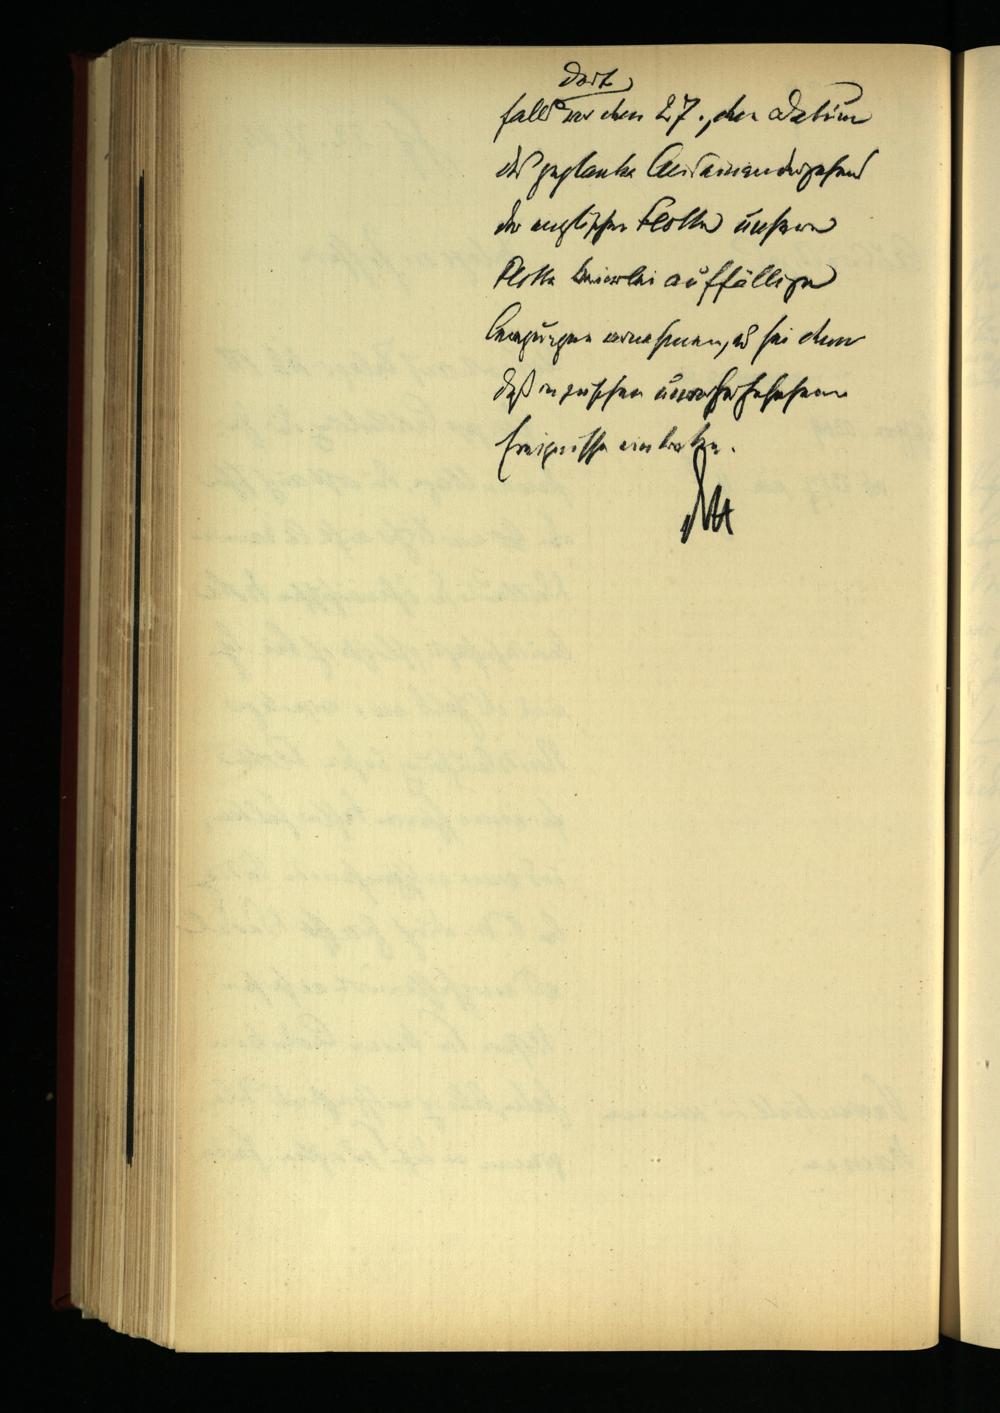 dort
falls vor dem 27., dem Datum
des geplanten Auseinandergehens
der englischen Flotte unsere
Flotte keinerlei auffälligen
Bewegungen vornehmen, es sei denn
daß inzwischen unvorhergesehene
Ereignisse eintreten.